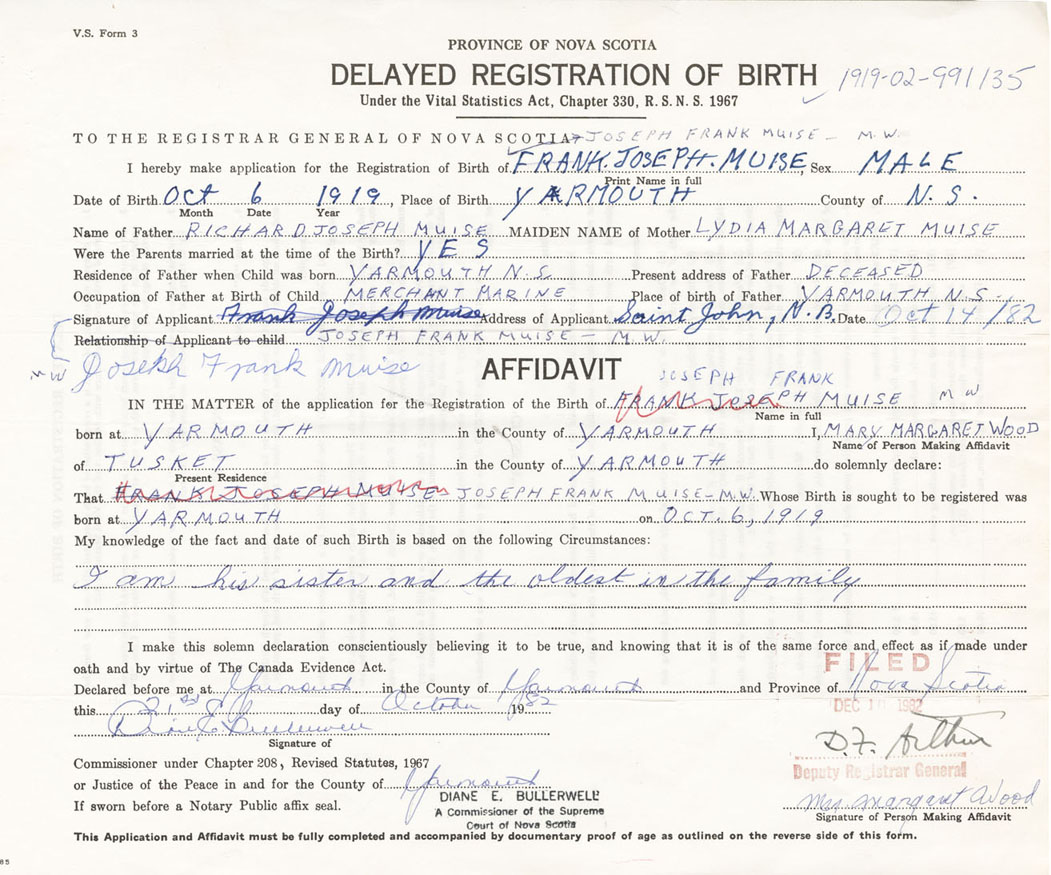 V.S. Form 3
PROVINCE OF NOVA SCOTIA
DELAYED REGISTRATION OF BIRTH 1919-02-991135
Under the Vital Statistics Act, Chapter 330, R.S.N.S. 1967
TO THE REGISTRAR GENERAL OF NOVA SCOTIA JOSEPH FRANK MUISE - M.W.
I hereby make application for the Registration of Birth of FRANK JOSEPH MUISE, Sex MALE
Print Name in full
Date of Birth Oct 6 1919, Place of Birth YARMOUTH County of N.S.
Month Date Year
Name of Father RICHARD JOSEPH MUISE MAIDEN NAME of Mother LYDIA MARGARET MUISE
Were the Parents married at the time of the Birth? YES
Residence of Father when Child was born YARMOUTH N.S. Present address of Father DECEASED
Occupation of Father at Birth of Child MERCHANT MARINE Place of birth of Father YARMOUTH N.S.
Signature of Applicant Frank Joseph Muise Address of Applicant Saint John, N.B. Date Oct 14/82
Relationship of Applicant to child JOSEPH FRANK MUISE - M.W.
MW Joseph Frank Muise
AFFIDAVIT JOSEPH FRANK
IN THE MATTER of the application for the Registration of the Birth of FRANK JOSEPH MUISE MW
Name in full
born at YARMOUTH in the County of YARMOUTH I, MARY MARGARET WOOD
Name of Person Making Affidavit
of TUSKET in the County of YARMOUTH do solemnly declare:
Present Residence
That FRANK JOSEPH MUISE JOSEPH FRANK MUISE-M.W. Whose Birth is sought to be registered was
born at YARMOUTH on OCT. 6, 1919
My knowledge of the fact and date of such Birth is based on the following Circumstances:
I am his sister and the oldest in the family
I make this solemn declaration conscientiously believing it to be true, and knowing that it is of the same force and effect as if made under
oath and by virtue of The Canada Evidence Act.
FILED
Declared before me at Yarmouth in the County of Yarmouth and Province of Nova Scotia
this 21st day of October 1982
DEC 10 1982
Diane E Bullerwell
D.F. Arthur
Signature of
Deputy Registrar General
Commissioner under Chapter 208, Revised Statutes, 1967
or Justice of the Peace in and for the County of Yarmouth
DIANE E. BULLERWELL
A Commissioner of the Supreme
Court of Nova Scotia
Mrs. Margaret Wood
If sworn before a Notary Public affix seal.
Signature of Person Making Affidavit
This Application and Affidavit must be fully completed and accompanied by documentary proof of age as outlined on the reverse side of this form.